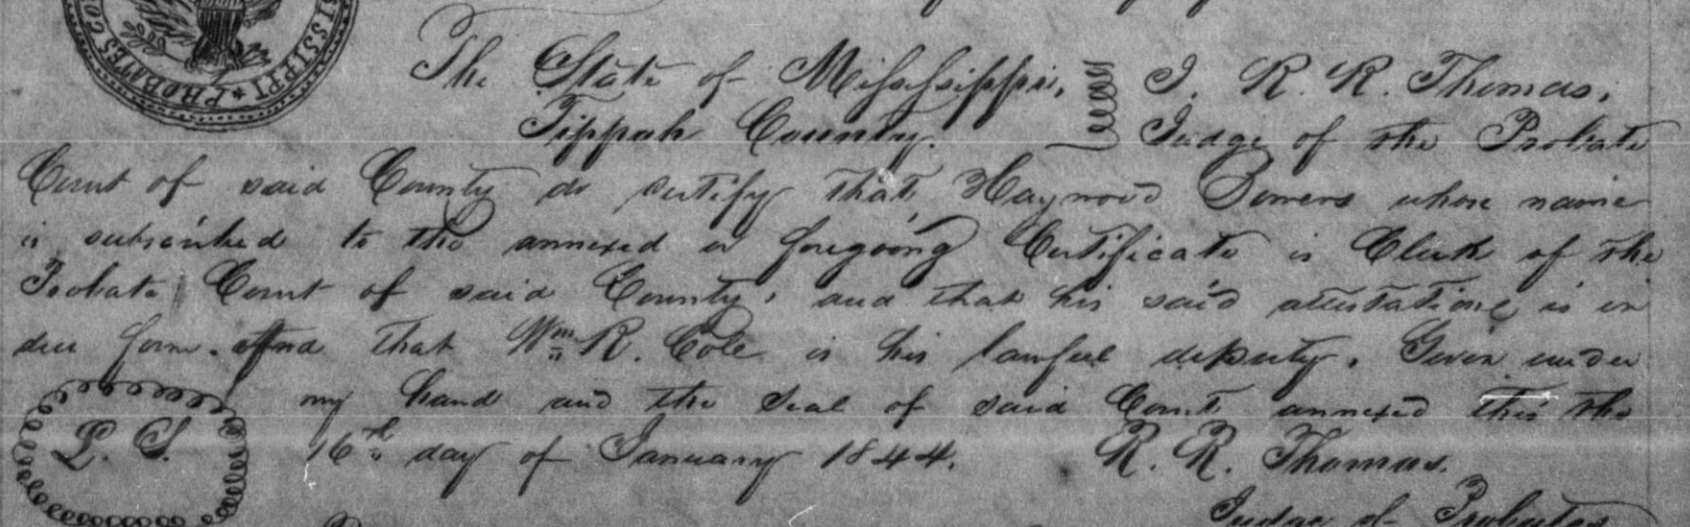 PROBATES CO ISSIPPI
The State of Mississippi, I. R. R. Thomas,
Tippah County. Judge of the Probate
Court of said County do certify that Haywood Bowers whose name
is subscribed to the annexed or foregoing Certificate is Clerk of the
Probate Court of said County, and that his said attestatione is in
due form. And that Wm R. Cole is his lawful deputy. Given under
my hand and the Seal of said Court annexed this the
L. S. 16th day of January 1844. R. R. Thomas.
Judge of Probates